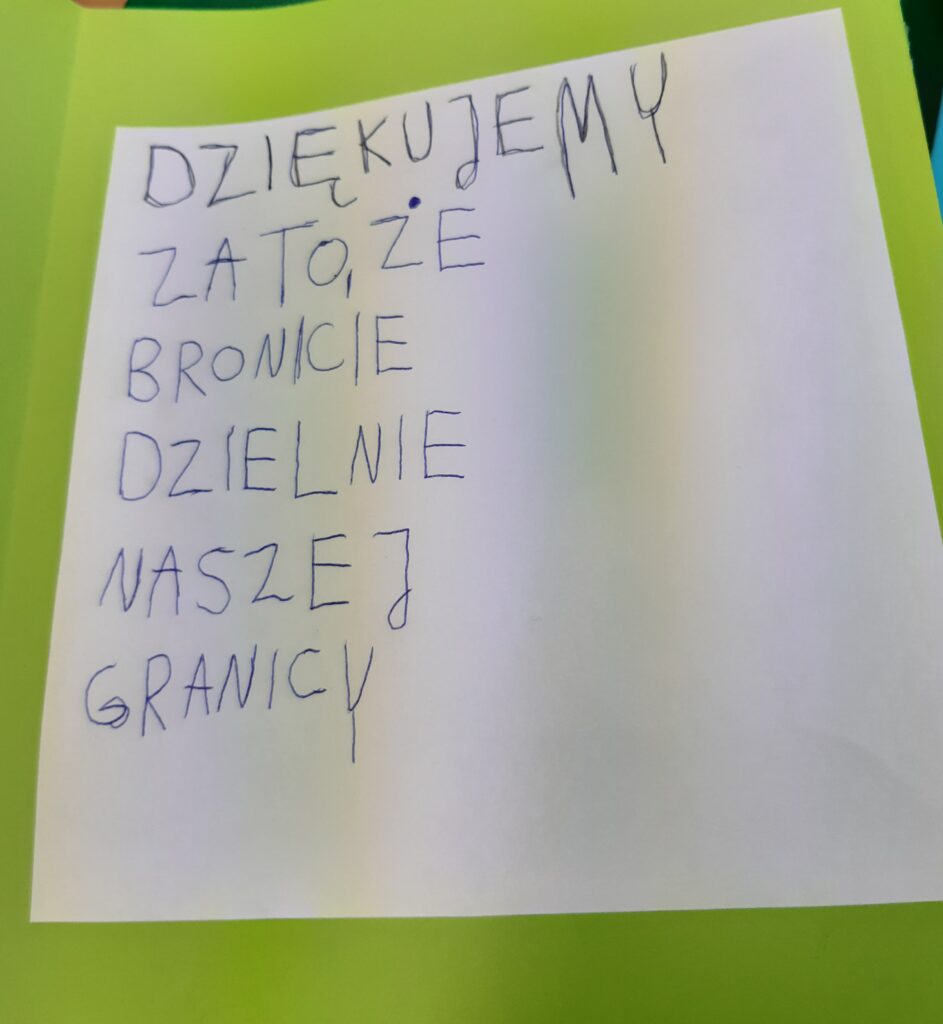 DZIĘKUJEMY
ZA TO, ŻE
BRONICIE
DZIELNIE
NASZEJ
GRANICY